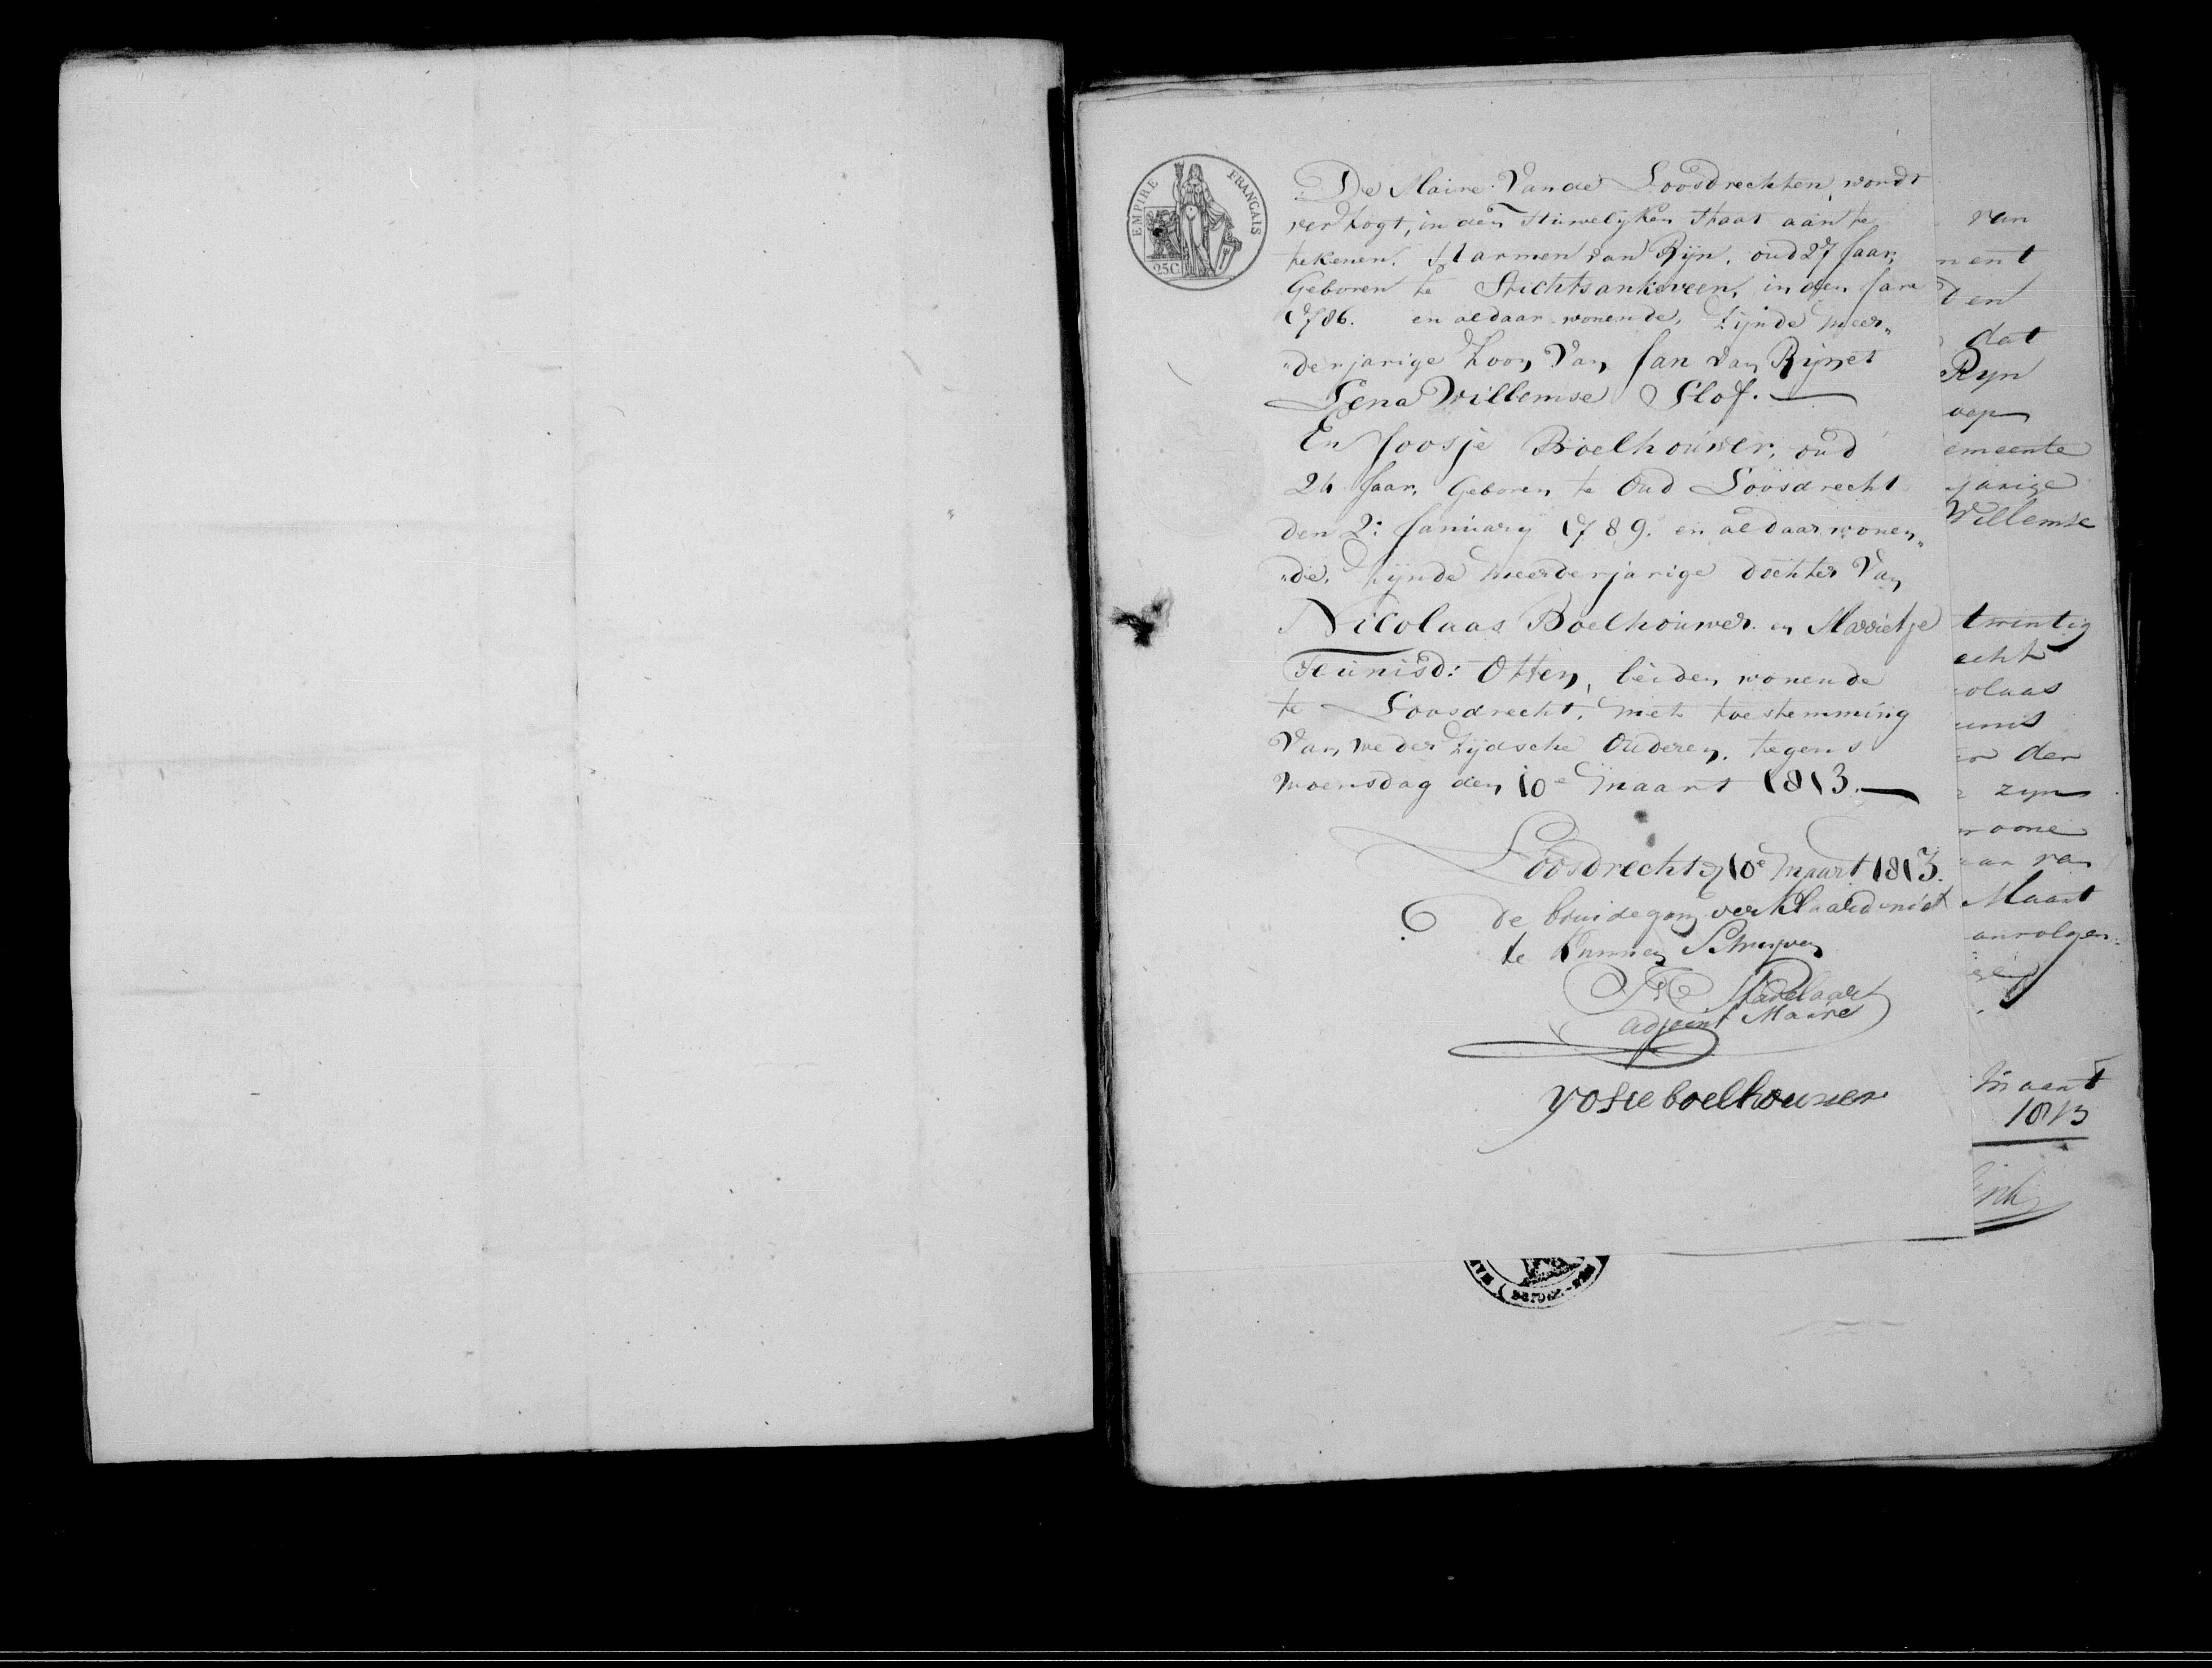 EMPIRE FRANÇAIS
25C
De Maire Van de Loosdrechten, wordt
verzogt, in den Huwelijken Staat aan te
tekenen. Harmen van Rijn. oud 27 Jaar,
Geboren te Stichtsankeveen, in den Jare
1786. en aldaar wonende, Zijnde meer„
„derjarige Zoon Van Jan van Rijn et
Lena Willemse Slof. —
En Joosje Boelhouwer, oud
24 Jaar, Geboren te Oud Loosdrecht
den 2: January 1789. en aldaar wonen„
„de, Zijnde meerderjarige dochter Van
Nicolaas Boelhouwer en Marretje
Teunisd: Otten, beiden wonende
te Loosdrecht, met toestemming
Van wederzijdsche Ouderen, tegens
Woensdag den 10e Maart 1813. —
Loosdrecht 10e Maart 1813.
de bruidegom verklaard niet
te kunnen Schrijven
adjoint Maire
yosie boelhouwer
van
ment
den
dat
Ryn
emeente
jarige
Willemse
twintig
echt
olaas
unis
der
zyn
woone
van
Maart
anvolgen:
Maart
1813